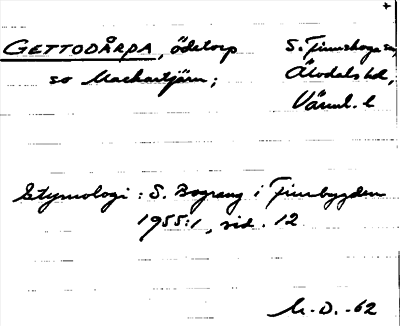 GETTODÅRPA, ödetorp
so Mackartjärn;
S. Finnskoga sn,
Älvdals hd,
Värml. l
Etymologi : S. Bograng i Finnbygden
1955:1, sid. 12
M.-D. -62